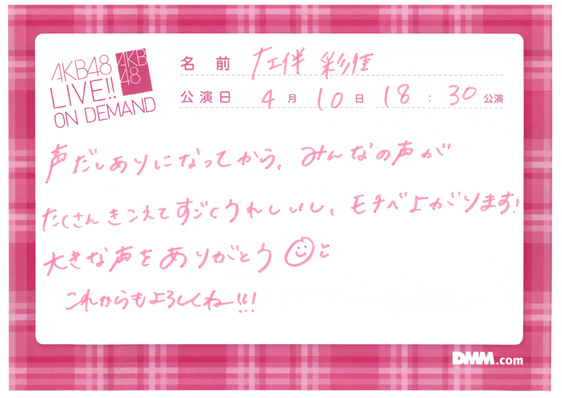 AKB48
LIVE!!
ON DEMAND
AKB
48
名前 左伴 彩佳
公演日 4月10日 18:30公演
声だしありになってから、みんなの声が
たくさんきこえてすごくうれしいし、モチベ上がります!
大きな声をありがとう
これからもよろしくね!!!
DMM.com